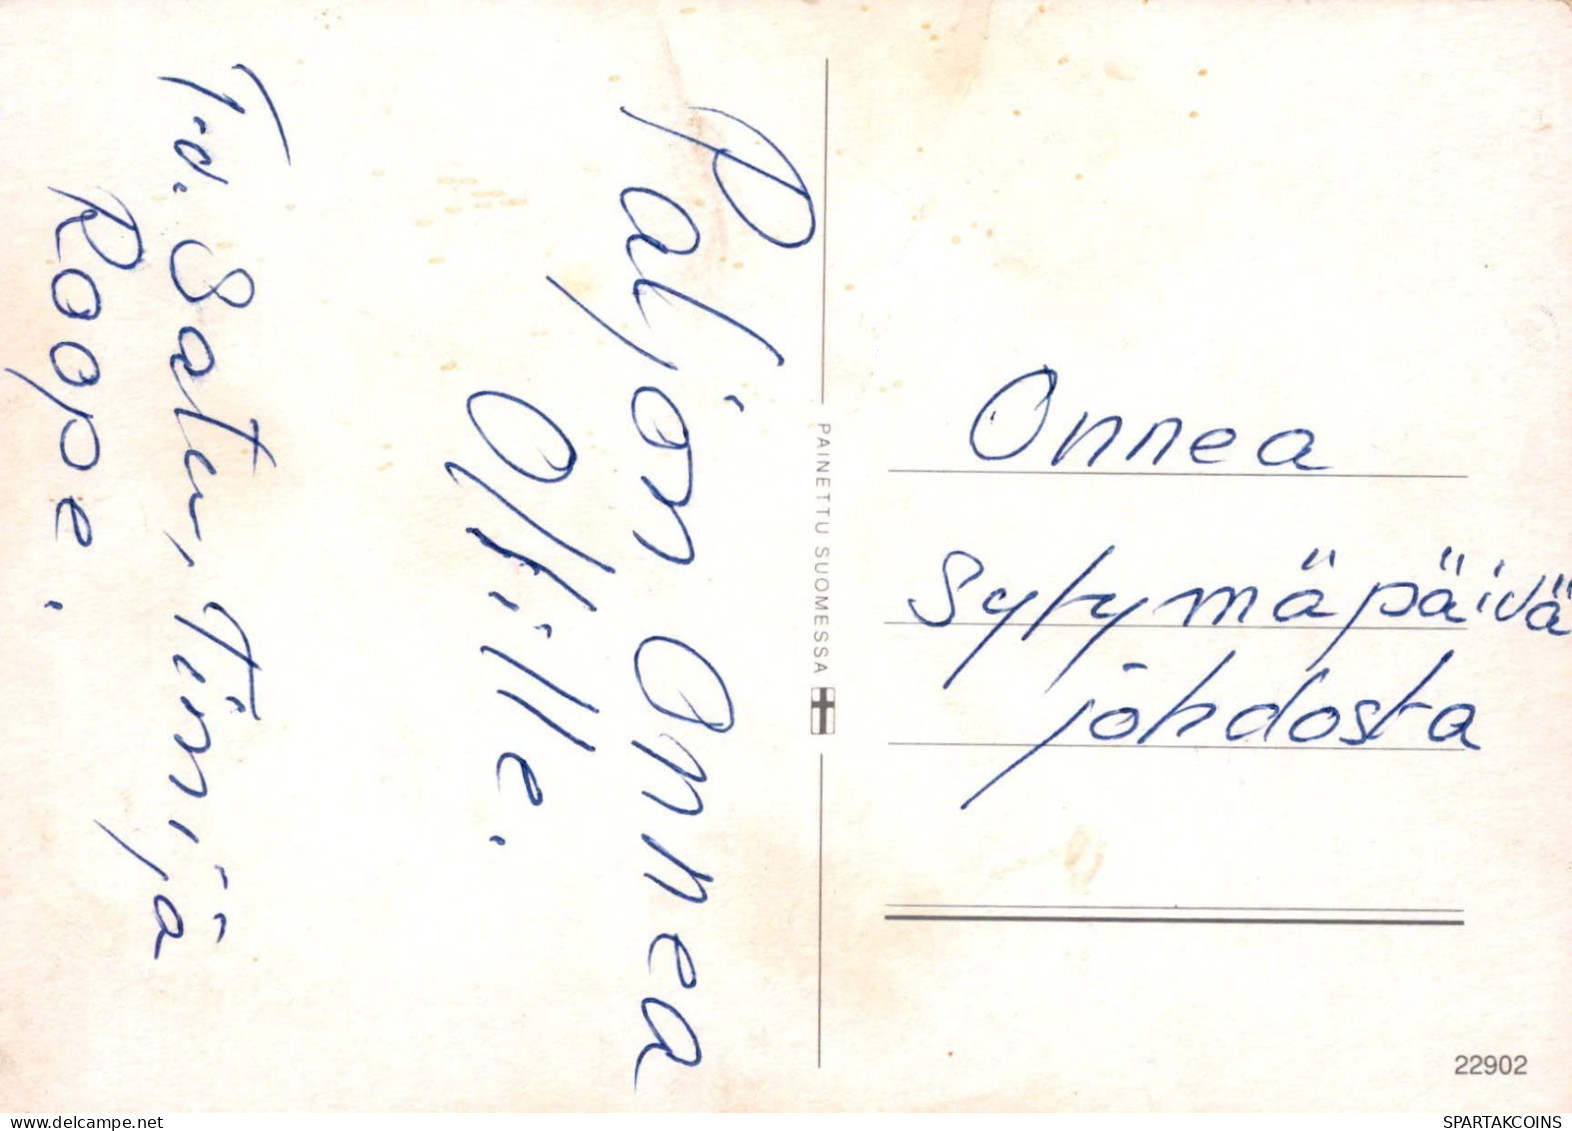 Paljon Onnea
Ollille.
T.d. Satu, Timi jä
Roope.
PAINETTU SUOMESSA
Onnea
Sytymäpäivä
jöhdosta
22902
SPARTAKCOINS